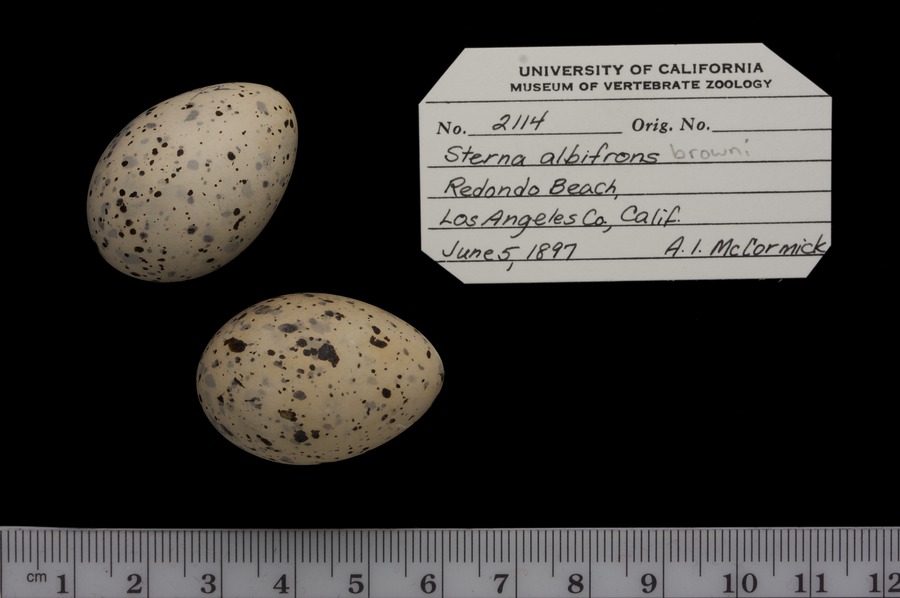 UNIVERSITY OF CALIFORNIA
MUSEUM OF VERTEBRATE ZOOLOGY
No. 2114 Orig. No.
Sterna albifrons browni
Redondo Beach,
Los Angeles Co., Calif.
June 5, 1897 A. I. McCormick
cm 1 2 3 4 5 6 7 8 9 10 11 12